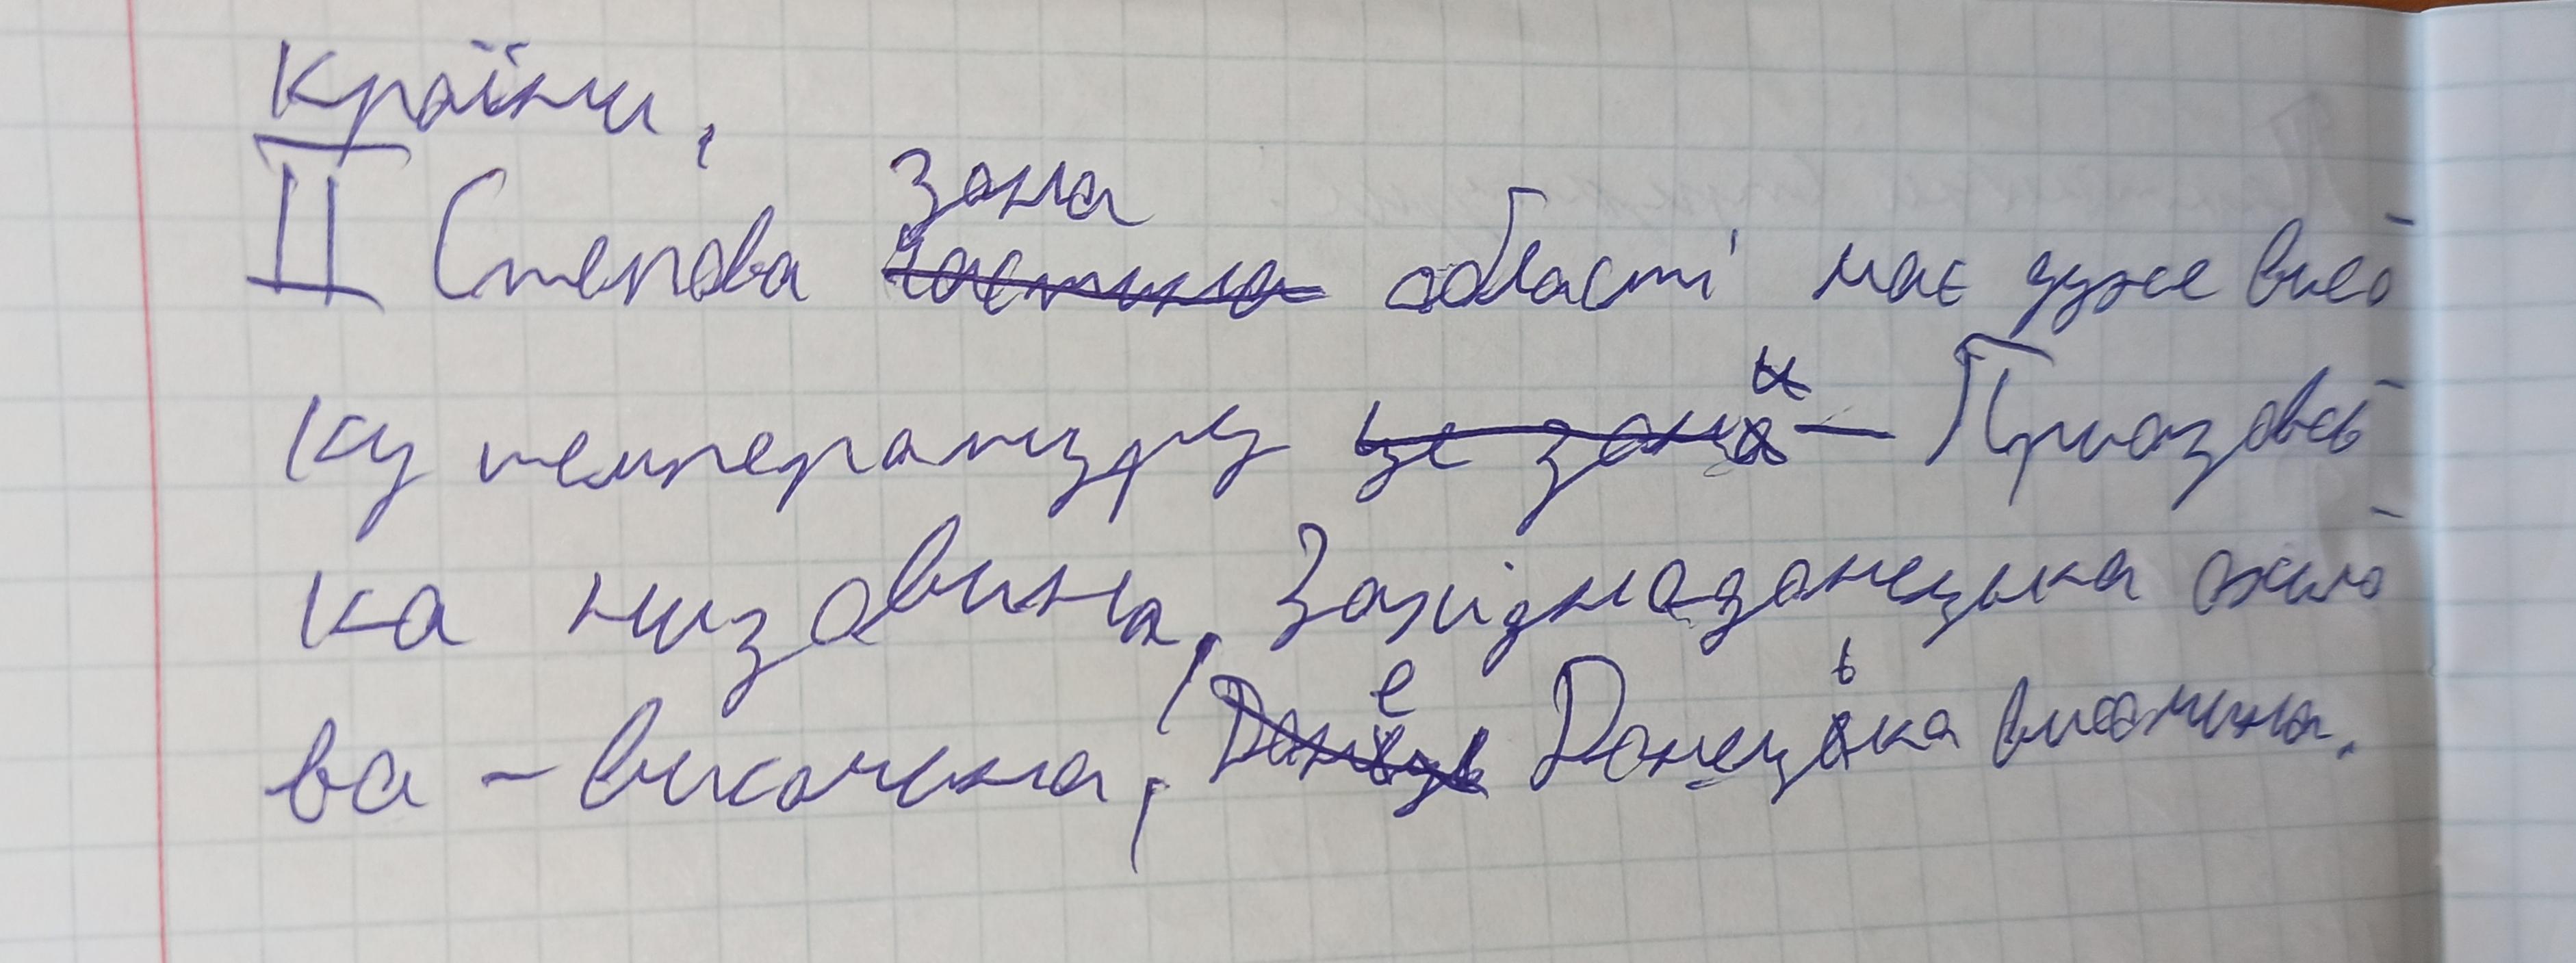 країни,
II Степова зона області має дуже висо-
ку температуру — Приазовсь-
ка низовина, Західнодонецька схило-
ва - височина, Донецька височина.